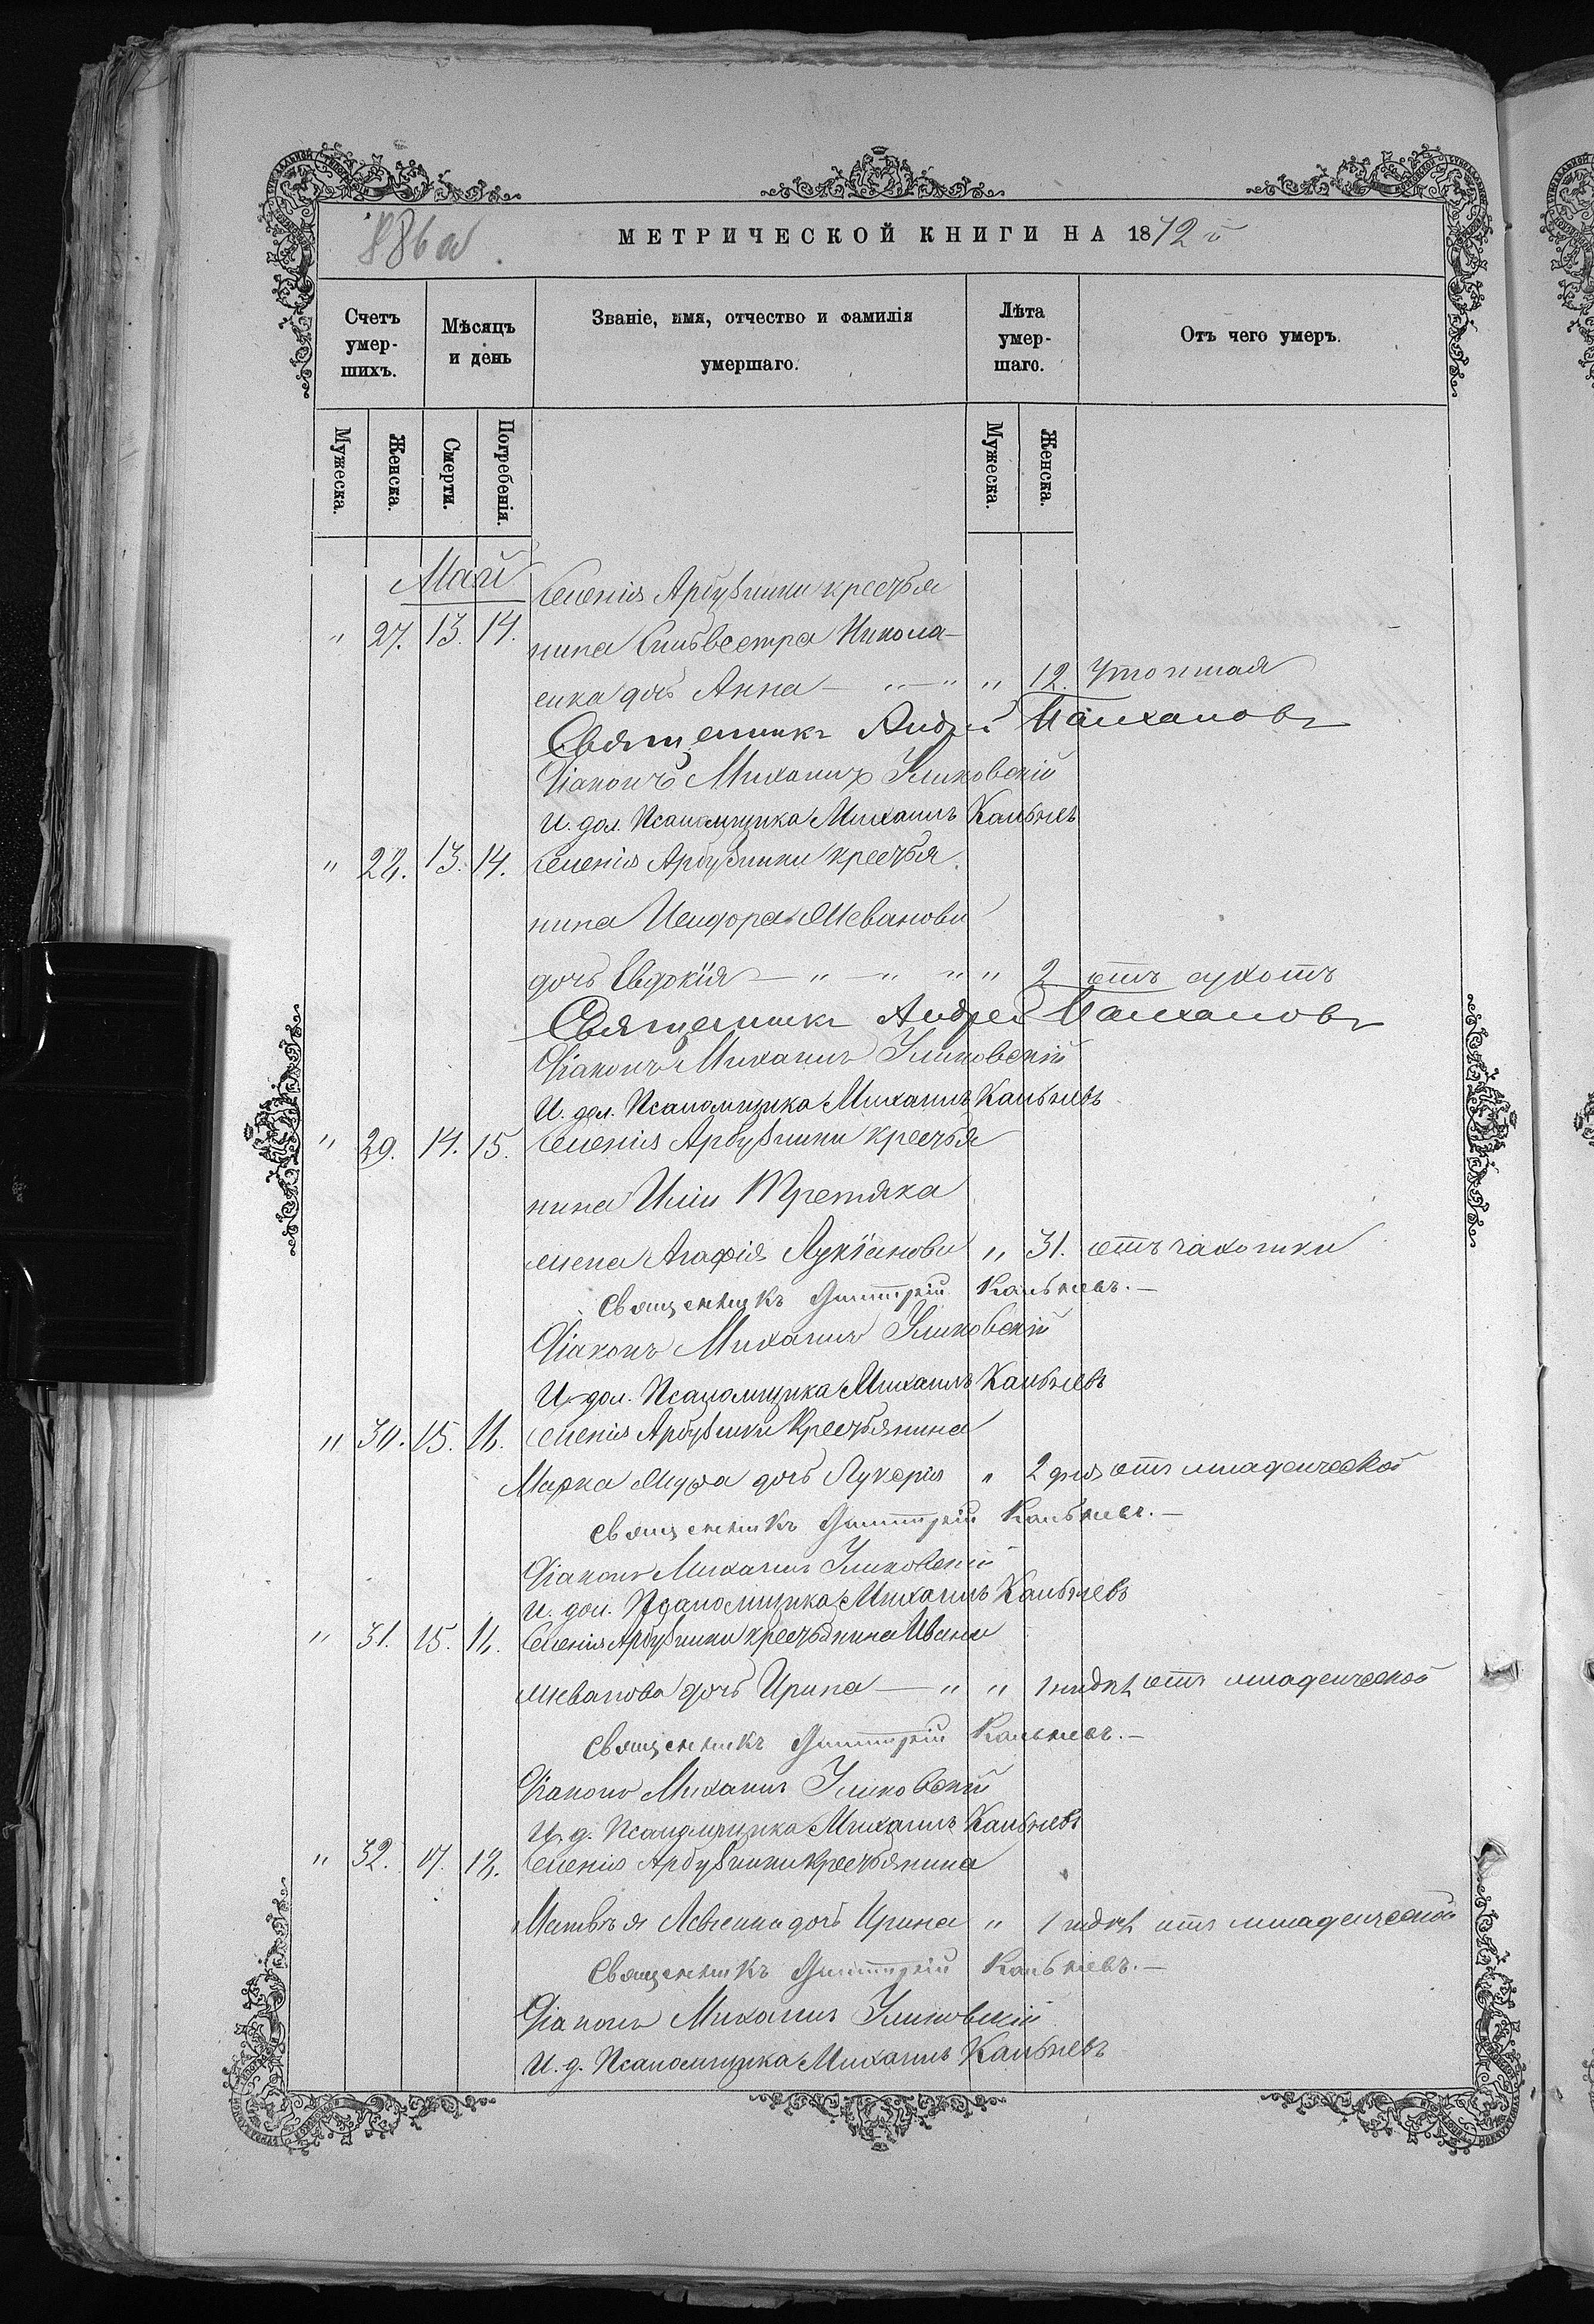 886 а
МЕТРИЧЕСКОЙ КНИГИ НА 1872 й
Счетъ умер-шихъ.
Мѣсяцъ и день
Званіе, имя, отчество и фамилія умершаго.
Лѣта умер-шаго.
Отъ чего умеръ.
Мужеска. Женска. Смерти. Погребенія. Мужеска. Женска.
Май
Селенія Арбузинки крестья
" 27. 13. 14. нина Сильвестра Никола-
енка дочь Анна — " — " " 12. Утопшая
Священникъ Андрей
Діаконъ Михаилъ
И. дол. Псаломщика Михаилъ Кальневъ
" 28. 13. 14. Селенія Арбузинки крестья
нина Исидора Жеванова
дочь Евдокія — " — " " " 2 отъ сухотъ
Священникъ Андрей
Діаконъ Михаилъ
И. дол. Псаломщика Михаилъ Кальневъ
" 29. 14. 15. Селенія Арбузинки крестья
нина Иліи Третяка
жена Агафія Лукіанова " 31. отъ чахотки
Священникъ Димитрій Кальневъ. —
Діаконъ Михаилъ
И. дол. Псаломщика Михаилъ Кальневъ
" 30. 15. 16. Селенія Арбузинки Крестьянина
Марка дочь Лукерія " 2 дня отъ младенческой
Священникъ Димитрій Кальневъ. —
Діаконъ Михаилъ
И. дол. Псаломщика Михаилъ Кальневъ
" 31. 15. 16. Селенія Арбузинки крестьянина Ивана
Жеванова дочь Ирина — " " 1 отъ младенческой
Священникъ Димитрій Кальневъ. —
Діаконъ Михаилъ
И. д. Псаломщика Михаилъ Кальневъ
" 32. 17. 18. Селенія Арбузинки крестьянина
Матвѣя дочь Ирина " 1 отъ младенческой
Священникъ Димитрій Кальневъ. —
Діаконъ Михаилъ
И. д. Псаломщика Михаилъ Кальневъ